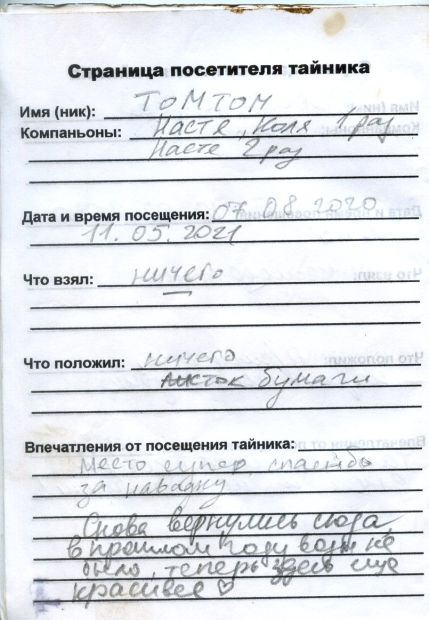 Страница посетителя тайника
Имя (ник): ТОМТОМ
Компаньоны: Настя, Коля 1 раз
Насте 2 раз
Дата и время посещения: 07.08.2020
11.05.2021
Что взял: ничего
Что положил: ничего
листок бумаги
Впечатления от посещения тайника:
Место супер, спасибо
за наводку
Снова вернулись сюда,
в прошлом году воды не
было, теперь здесь еще
красивее ♡